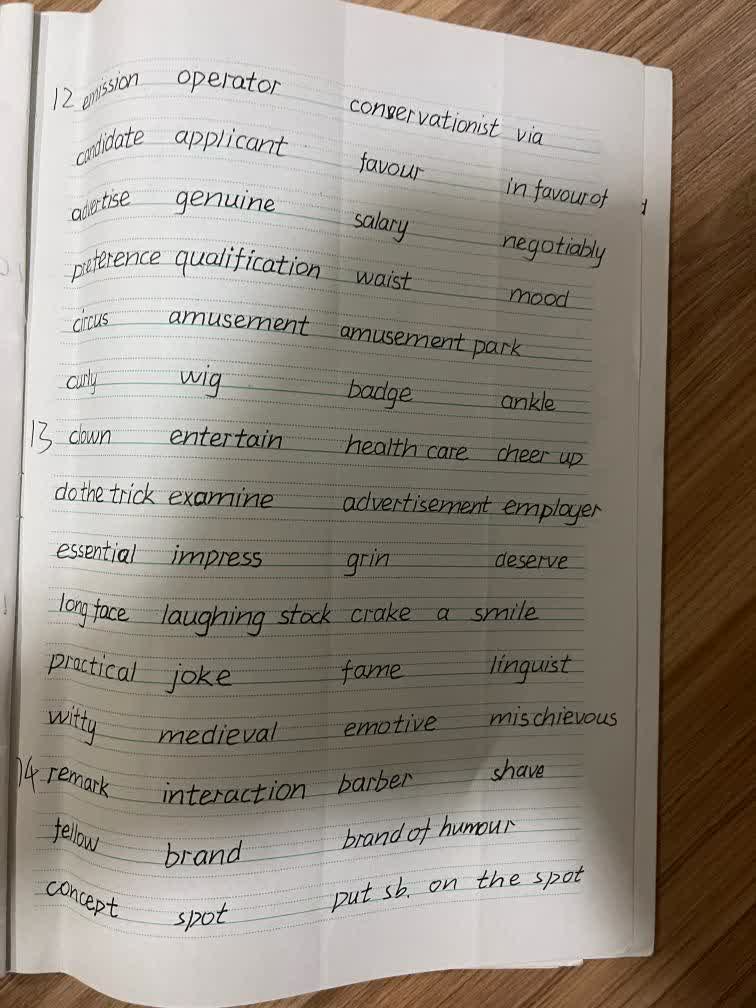 12 emission operator conservationist via
candidate applicant favour in favour of
advertise genuine salary negotiably
preference qualification waist mood
circus amusement amusement park
curly wig badge ankle
13 clown entertain health care cheer up
do the trick examine advertisement employer
essential impress grin deserve
long face laughing stock crake a smile
practical joke fame linguist
witty medieval emotive mischievous
14 remark interaction barber shave
fellow brand brand of humour
concept spot put sb. on the spot